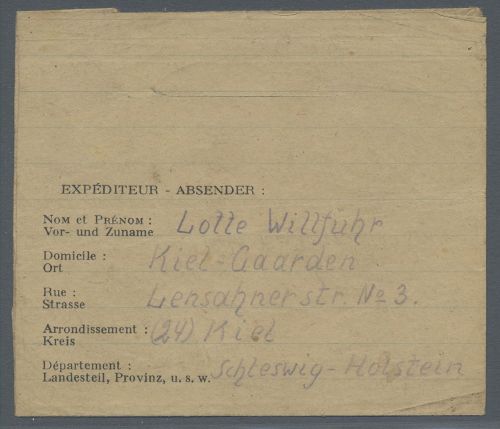 EXPÉDITEUR - ABSENDER :
NOM et PRÉNOM : Lotte Willführ
Vor- und Zuname
Domicile : Kiel-Gaarden
Ort
Rue : Lensahnerstr. No 3.
Strasse
Arrondissement : (24) Kiel
Kreis
Département : Schleswig-Holstein
Landesteil, Provinz, u. s. w.